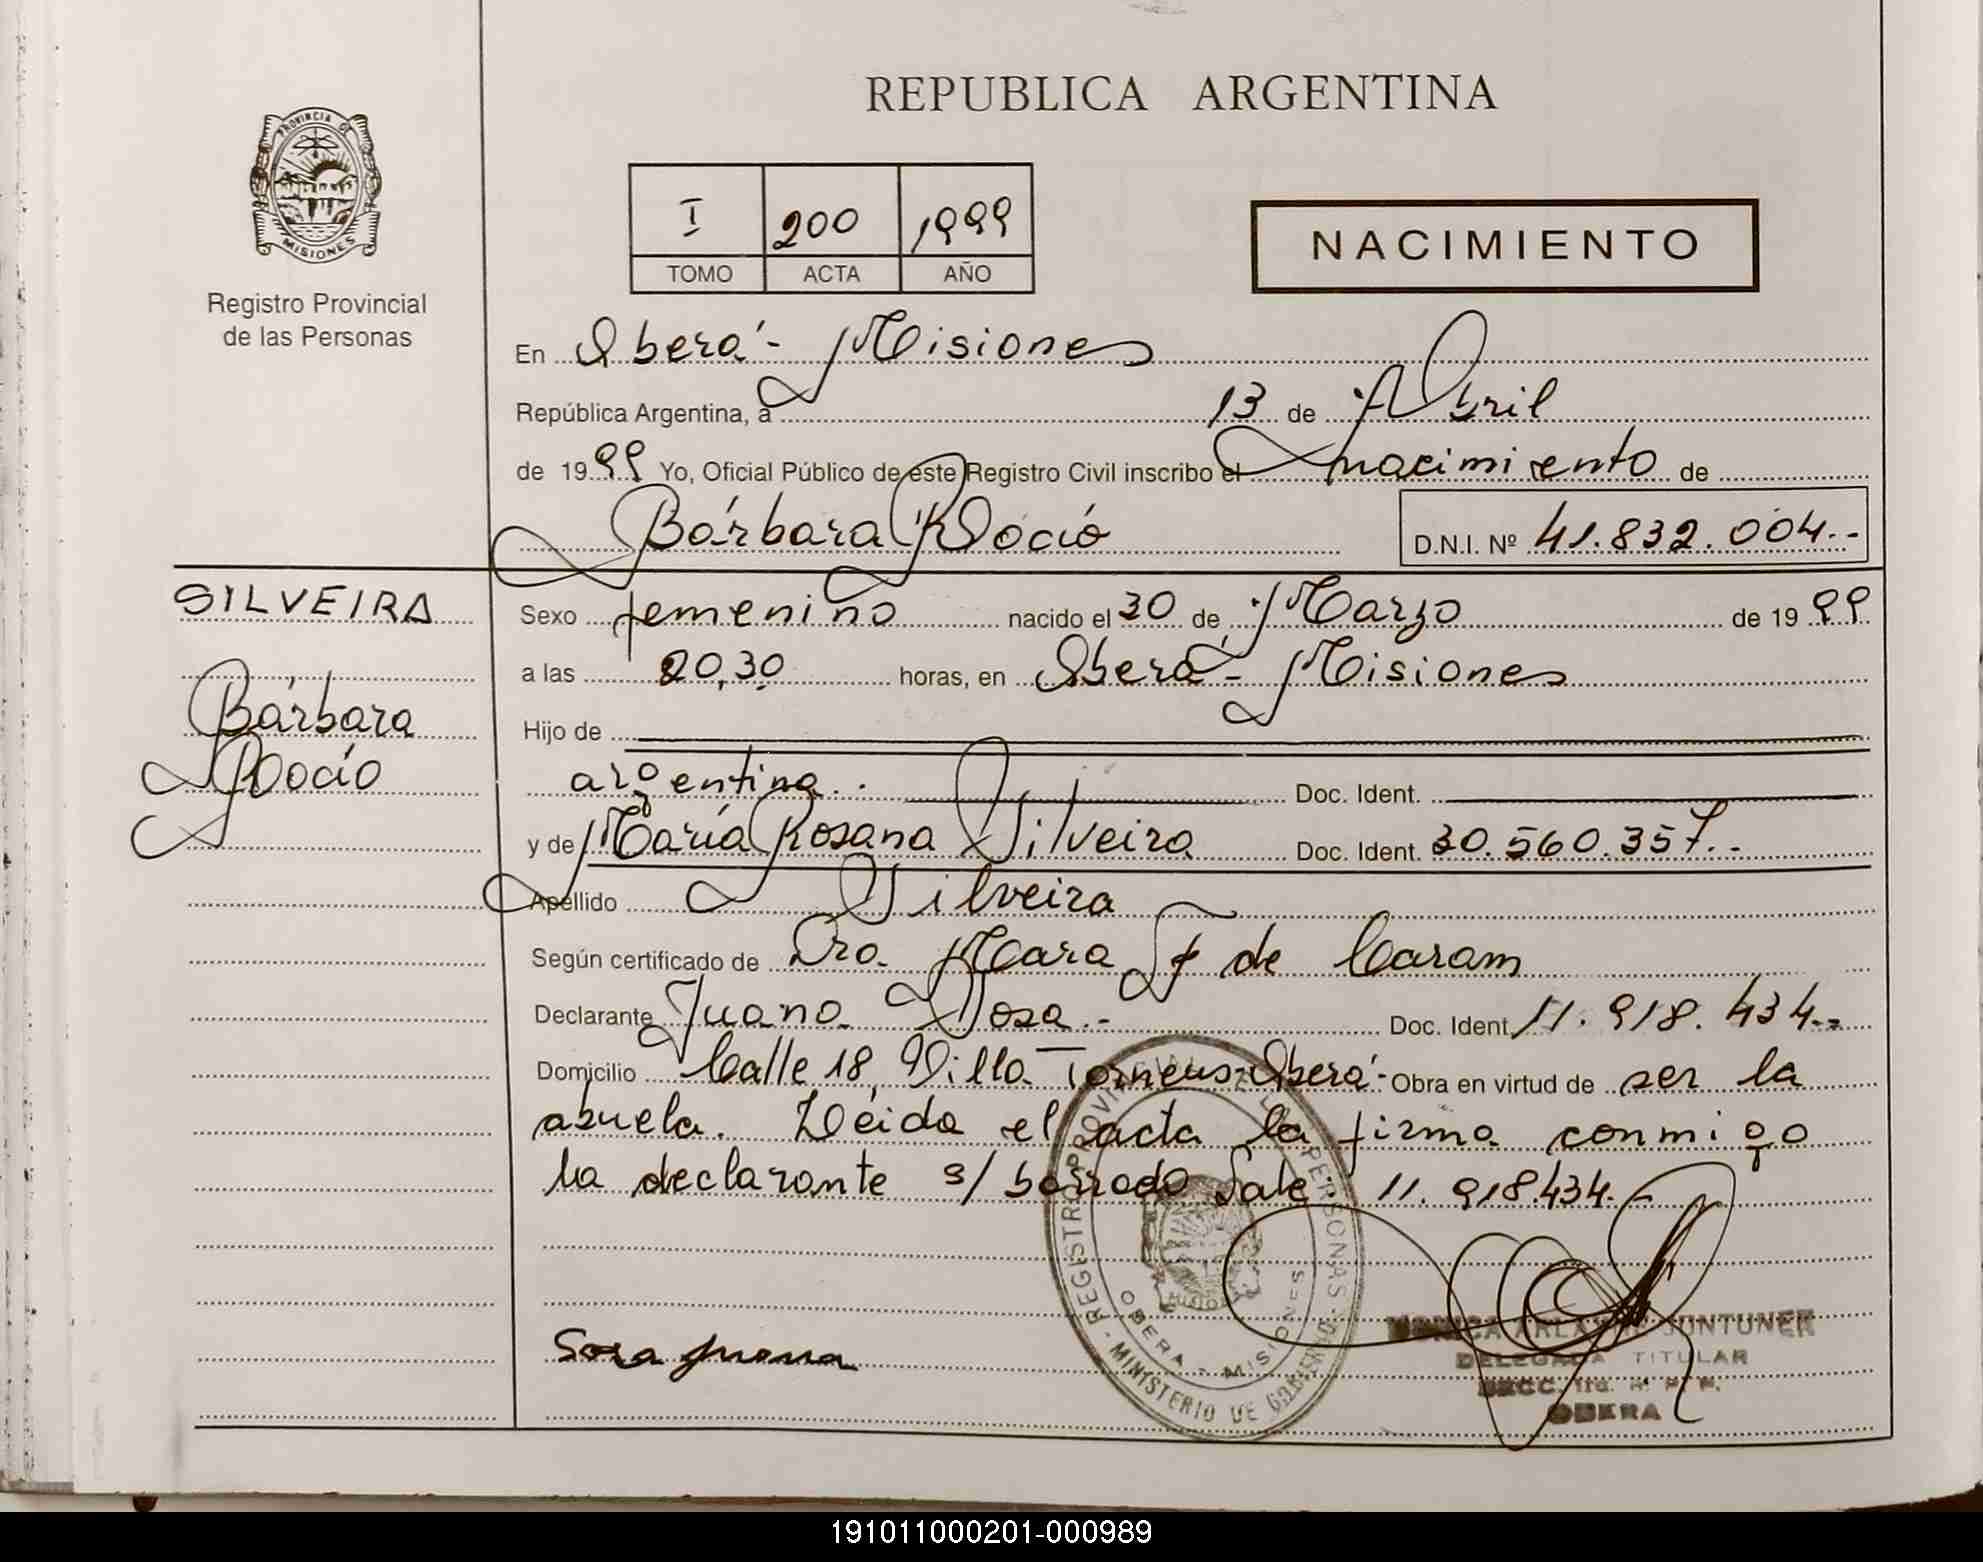 REPUBLICA ARGENTINA
PROVINCIA DE
MISIONES
Registro Provincial
de las Personas
I 200 1999
TOMO ACTA AÑO
NACIMIENTO
En Oberá - Misiones
República Argentina, a 13 de Abril
de 1999 Yo, Oficial Público de este Registro Civil inscribo el nacimiento de
Bárbara Rocío D.N.I. Nº 41.832.004.-
SILVEIRA
Bárbara
Rocío
Sexo femenino nacido el 30 de Marzo de 1999
a las 20,30 horas, en Oberá - Misiones
Hijo de
argentina.. Doc. Ident.
y de María Rosana Silveira Doc. Ident. 30.560.357.-
Apellido Silveira
Según certificado de Dra. Mara F de Caram
Declarante Juana Sosa.- Doc. Ident. 11.918.434.-
Domicilio Calle 18, Villa Torneus-Oberá- Obra en virtud de ser la
abuela. Léida el acta la firma conmigo
la declarante s/ borrado Sale: 11.918.434.-
REGISTRO PROVINCIAL DE LAS PERSONAS
OBERA - MISIONES
MINISTERIO DE GOBIERNO
Sosa Juana
DELEGADA TITULAR
OBERA
191011000201-000989